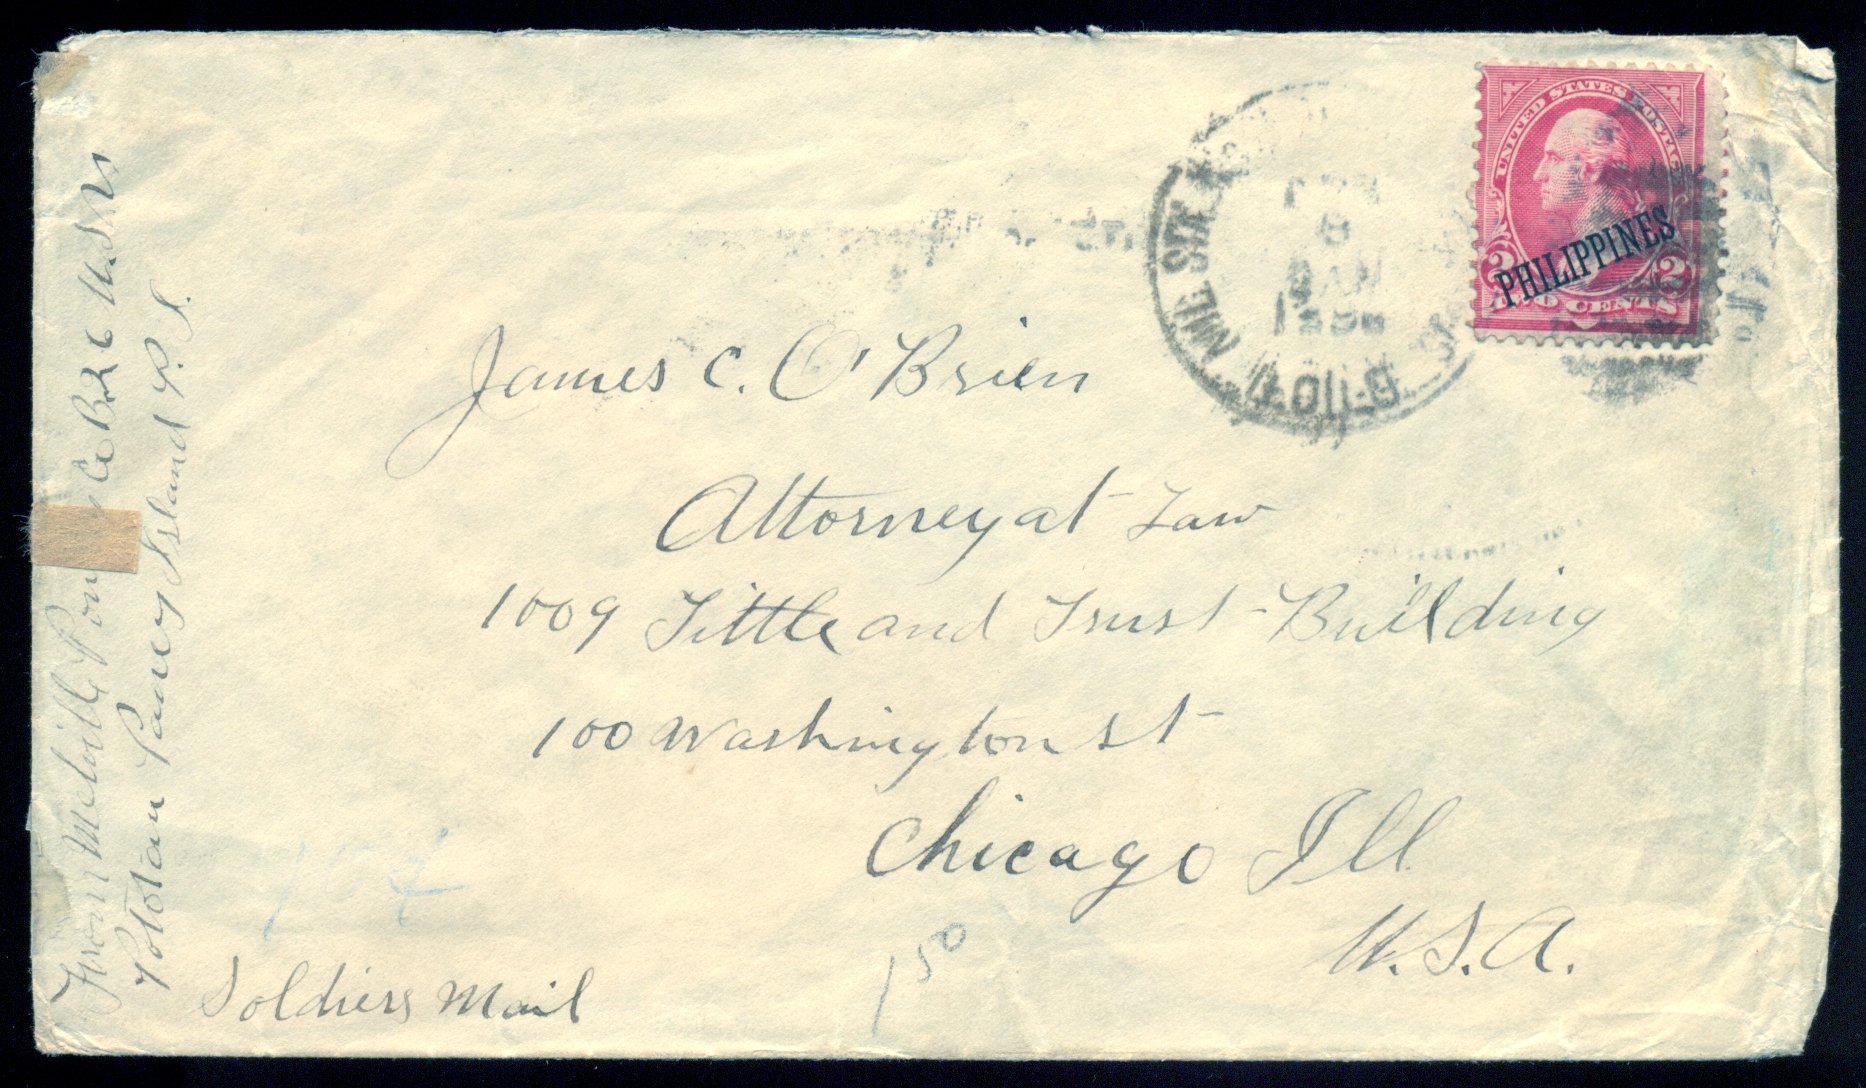 From Melville Co B 26 U.S.V.
Pototan Panay Island P. I.
UNITED STATES POSTAGE
PHILIPPINES
2 2
TWO CENTS
MIL. STA.
James C. O'Brien
Attorney at Law
1009 Tittle and Trust Building
100 Washington St
Chicago Ill
U.S.A.
Soldiers Mail
150